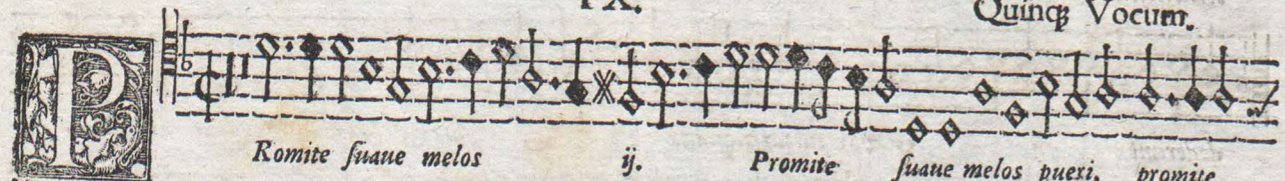 IX. Quinq Vocum.
PRomite ſuaue melos ij. Promite ſuaue melos pueri, promite